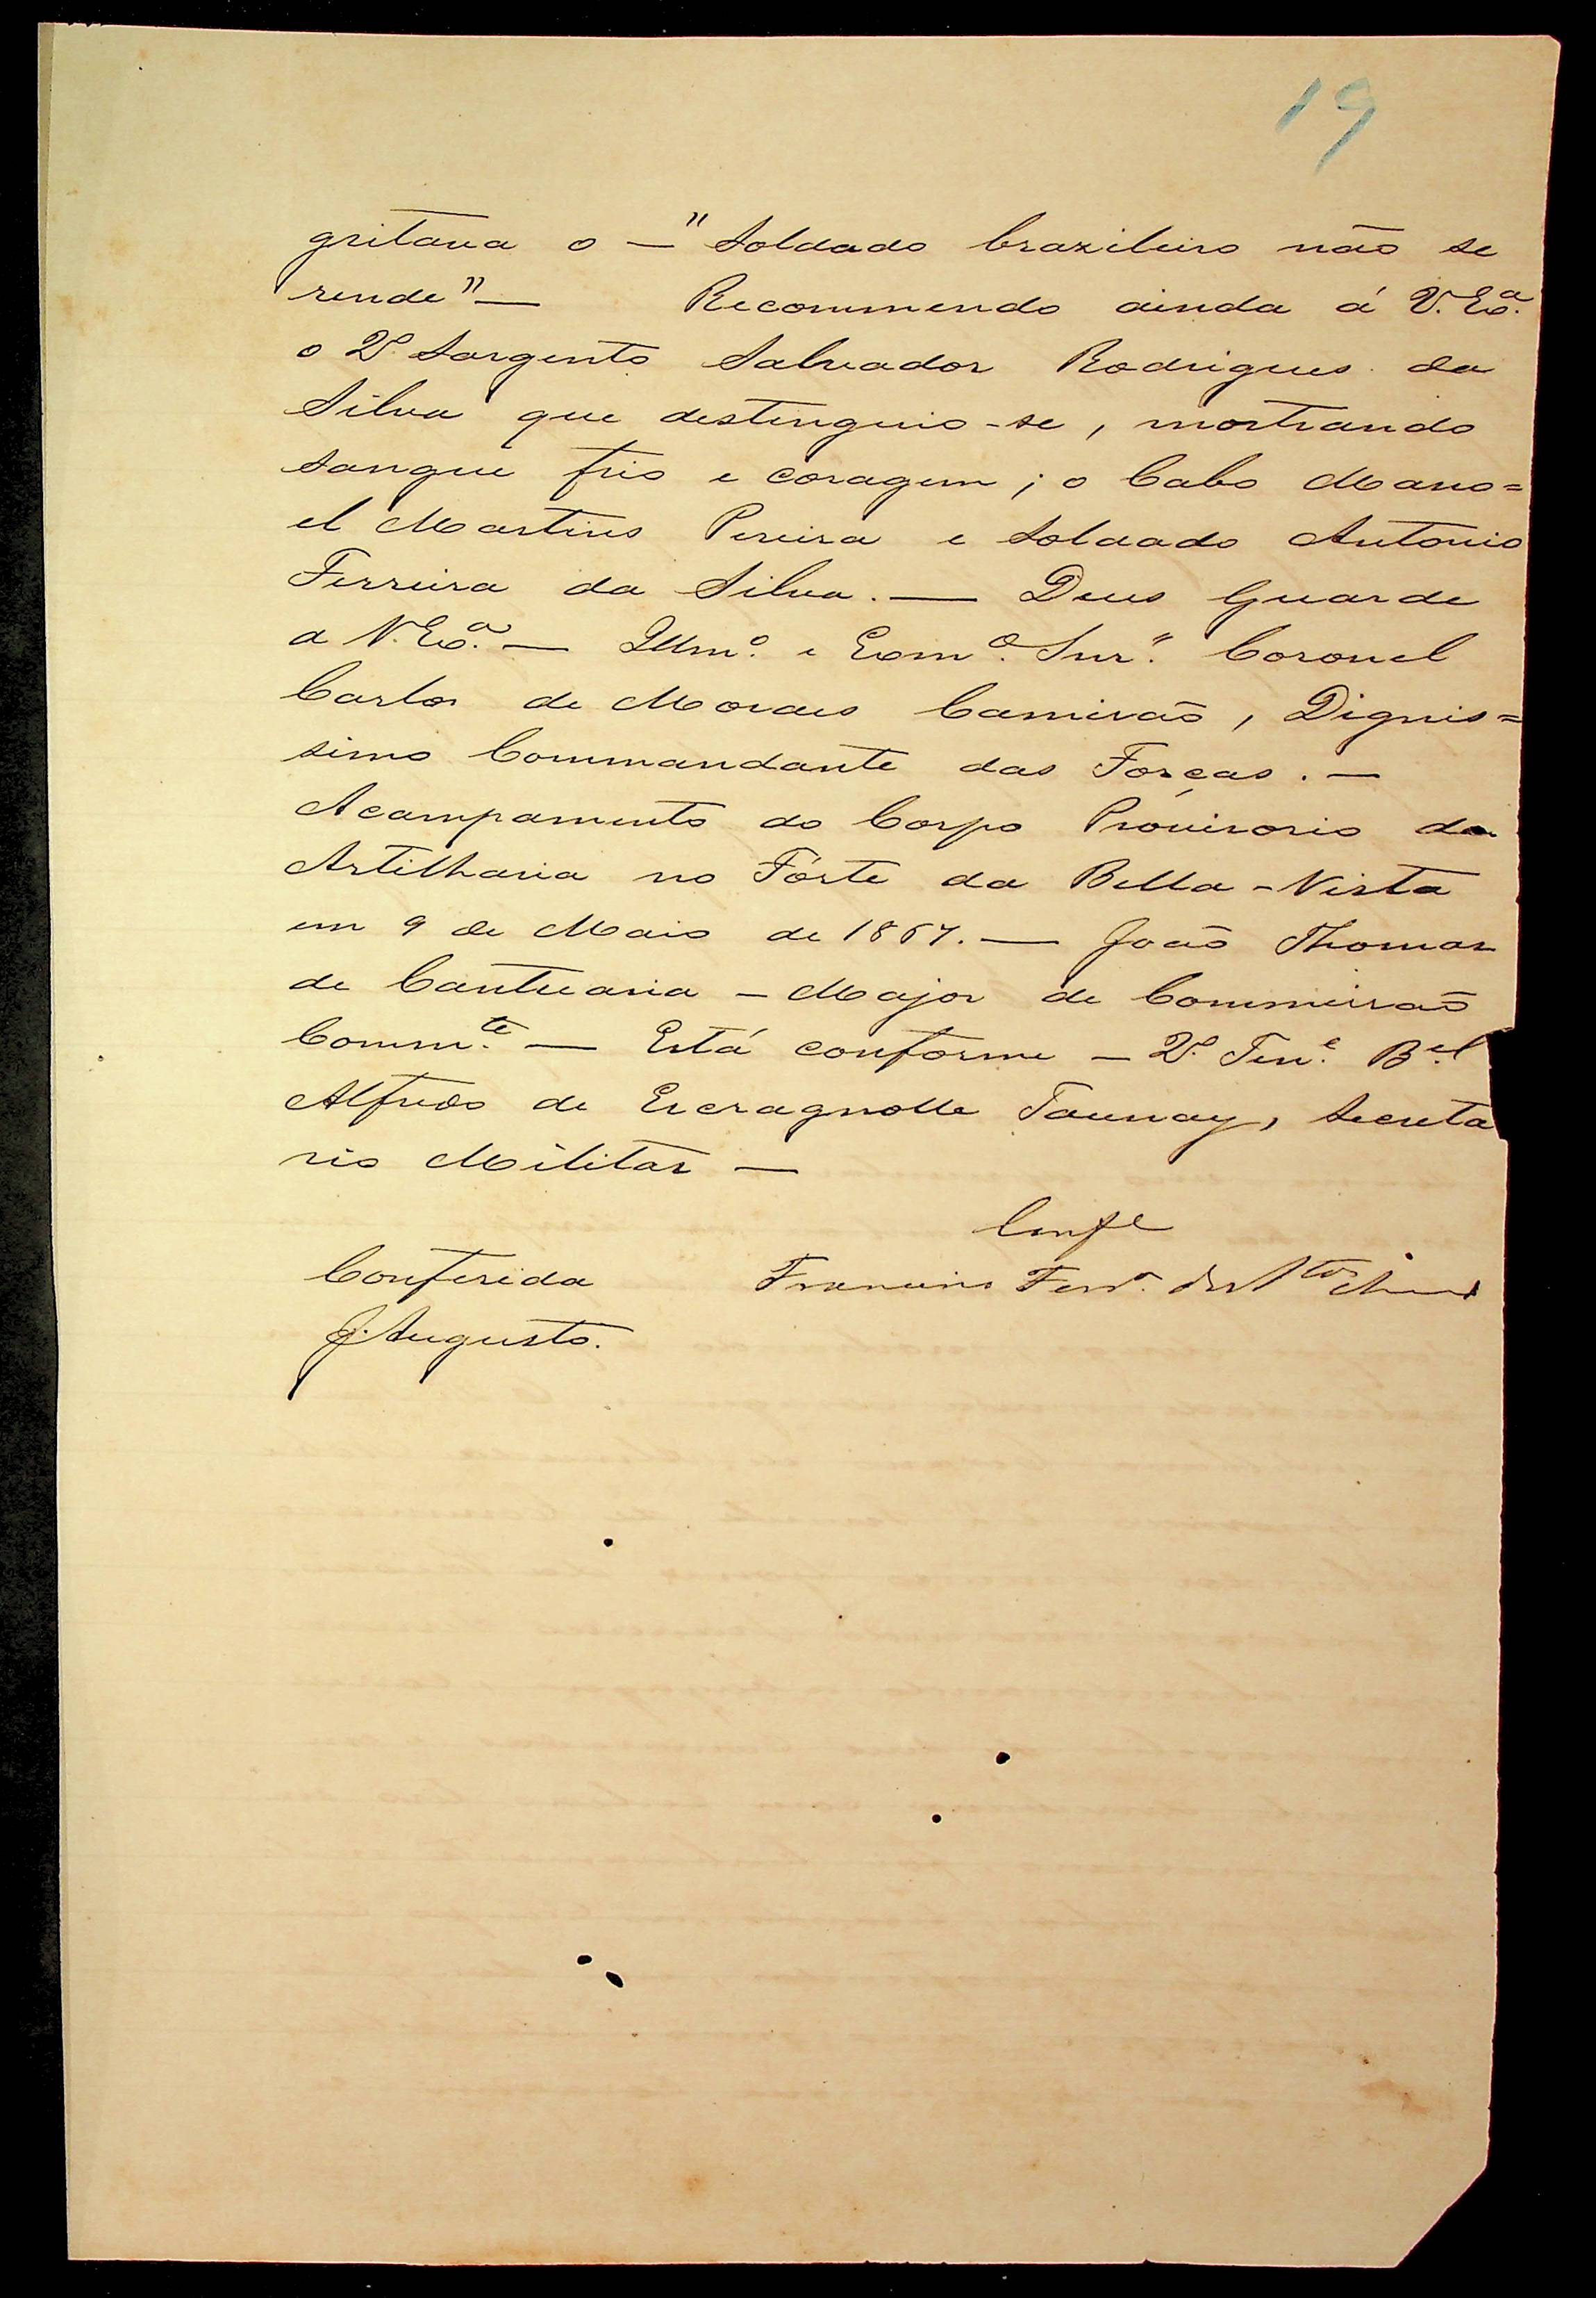 19
gritava o — "Soldado brazileiro não se
rende" — Recommendo ainda á V. Exª.
o 2º Sargento Salvador Rodrigues da
Silva que destinguio-se, mostrando
sangue frio e coragem; o Cabo Mano=
el Martins Pereira e soldado Antonio
Ferreira da Silva. — Deus Guarde
a V. Exª. — Illmº. e Exmº. Snr. Coronel
Carlos de Moraes Camisão, Dignis=
simo Commandante das Forças. —
Acampamento do Corpo Provisorio da
Artilharia no Fórte da Bella-Vista
em 9 de Maio de 1867. — João Thomas
de Cantuaria — Major de Commissão
Comm.te — Está conforme — 2º Ten.e B.el
Alfredo de Escragnolle Taunay, Secreta
rio Militar —
Conf.e
Conferida Francisco Ferr.ª
J. Augusto.